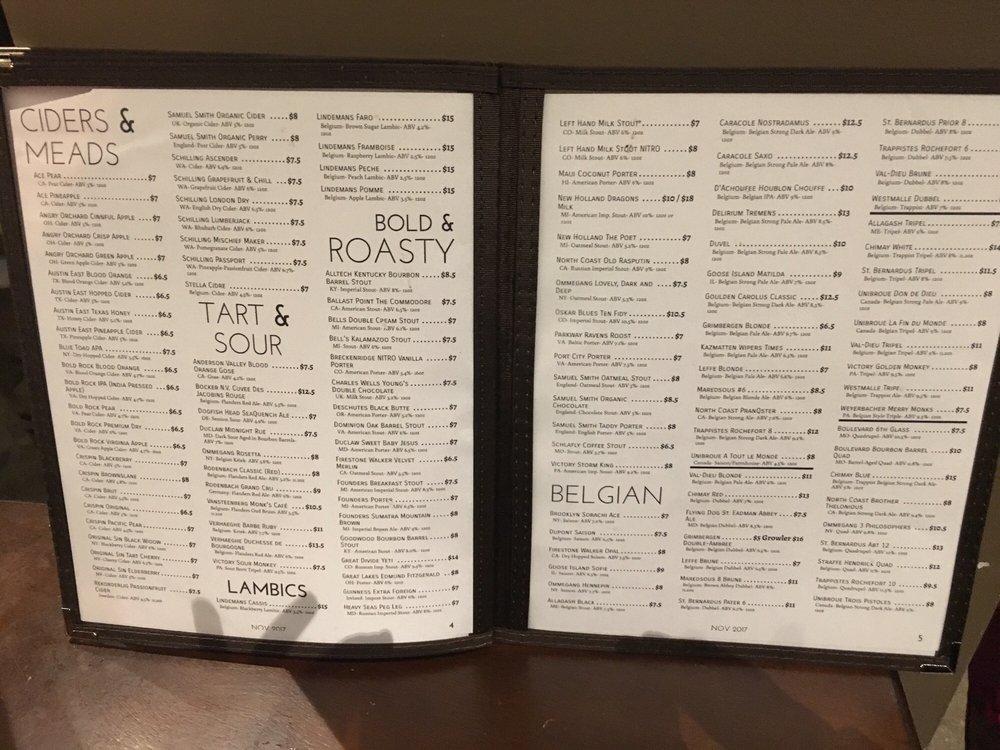 CIDERS &
MEADS
ACE PEAR $7
CA- Pear Cider- ABV 5%- 12oz
ACE PINEAPPLE $7
CA- Cider- ABV 5%- 12oz
ANGRY ORCHARD CINNFUL APPLE $7
OH- Cider- ABV 5%- 12oz
ANGRY ORCHARD CRISP APPLE $7
OH- Cider- ABV 5%- 12oz
ANGRY ORCHARD GREEN APPLE $7
OH- Green Apple Cider- ABV 5%- 12oz
AUSTIN EAST BLOOD ORANGE $6.5
TX- Blood Orange Cider- ABV
AUSTIN EAST HOPPED CIDER $6.5
TX- Cider- ABV 5%- 12oz
AUSTIN EAST TEXAS HONEY $6.5
TX- Honey Cider- ABV
AUSTIN EAST PINEAPPLE CIDER $6.5
TX- Pineapple Cider- ABV 5%- 12oz
BLUE TOAD APA $7.5
NY- Dry-Hopped Cider
BOLD ROCK BLOOD ORANGE $6.5
VA- Blood Orange Cider- ABV
BOLD ROCK IPA (INDIA PRESSED $6.5
APPLE)
VA- Dry Hopped Cider- ABV
BOLD ROCK PEAR $6.5
VA- Pear Cider- ABV 4.7%- 12oz
BOLD ROCK PREMIUM DRY $6.5
VA- Cider- ABV
BOLD ROCK VIRGINIA APPLE $6.5
VA- Green Apple Cider- ABV 4.7%- 12oz
CRISPIN BLACKBERRY $7
CA- Cider- ABV 5%- 12oz
CRISPIN BROWNSLANE $8
CRISPIN BRUT $7
CRISPIN ORIGINAL $6.5
CRISPIN PACIFIC PEAR $7
ORIGINAL SIN BLACK WIDOW $7
NY- Blackberry Cider- ABV
ORIGINAL SIN TART CHERRY $7
NY- Cherry Cider
ORIGINAL SIN ELDERBERRY $7
REKORDERLIG PASSIONFRUIT $7.5
CIDER
SAMUEL SMITH ORGANIC CIDER $8
UK- Organic Cider- ABV 5%- 12oz
SAMUEL SMITH ORGANIC PERRY $8
England- Pear Cider- ABV 5%- 12oz
SCHILLING ASCENDER $7.5
WA- Cider- ABV 6.5%- 12oz
SCHILLING GRAPEFRUIT & CHILL $7.5
WA- Grapefruit Cider- ABV 6%- 12oz
SCHILLING LONDON DRY $7.5
WA- English Dry Cider- ABV 6.5%- 12oz
SCHILLING LUMBERJACK $7.5
WA- Rhubarb Cider- ABV 6%- 12oz
SCHILLING MISCHIEF MAKER $7.5
WA- Pomegranate Cider- ABV 5%- 12oz
SCHILLING PASSPORT $7.5
WA- Pineapple-Passionfruit Cider- ABV 6.7%-
12oz
STELLA CIDRE $7
Belgium- Cider- ABV 4.5%- 12oz
TART &
SOUR
ANDERSON VALLEY BLOOD $7.5
ORANGE GOSE
CA- Gose- ABV 4.2%- 12oz
BOCKER N.V. CUVEE DES $12.5
JACOBINS ROUGE
Belgium- Flanders Red Ale- ABV 5.5%- 12oz
DOGFISH HEAD SEAQUENCH ALE $7
DE- Session Sour- ABV 4.9%- 12oz
DUCLAW MIDNIGHT RUE $7.5
MD- Dark Sour Aged in Bourbon Barrels-
ABV 7%- 12oz
OMMEGANG ROSETTA $8
NY- Belgian Kriek- ABV 5.6%- 12oz
RODENBACH CLASSIC (RED) $8
RODENBACH GRAND CRU $9
VANSTEENBERG MONK'S CAFÉ $10.5
VERHAEGHE BARBE RUBY $11
Belgium- Kriek
VERHAEGHE DUCHESSE DE $13.5
BOURGOGNE
Belgium- Flanders Red Ale- ABV 6%- 12oz
VICTORY SOUR MONKEY $7.5
PA- Sour Brett Tripel- ABV 9.5%- 12oz
LAMBICS
LINDEMANS CASSIS $15
Belgium- Blackberry Lambic
LINDEMANS FARO $15
Belgium- Brown Sugar Lambic- ABV 4.2%-
12oz
LINDEMANS FRAMBOISE $15
Belgium- Raspberry Lambic- ABV 2.5%- 12oz
LINDEMANS PECHE $15
Belgium- Peach Lambic- ABV 2.5%- 12oz
LINDEMANS POMME $15
Belgium- Apple Lambic- ABV 3.5%- 12oz
BOLD &
ROASTY
ALLTECH KENTUCKY BOURBON $8.5
BARREL STOUT
KY- Imperial Stout- ABV 8%- 12oz
BALLAST POINT THE COMMODORE $7.5
CA- American Stout- ABV 6.5%- 12oz
BELLS DOUBLE CREAM STOUT $7
MI- American Stout- ABV 6.1%- 12oz
BELL'S KALAMAZOO STOUT $7.5
MI- Stout- ABV 6%- 12oz
BRECKENRIDGE NITRO VANILLA $7
PORTER
CO- American Porter- ABV 5.4%- 16oz
CHARLES WELLS YOUNG'S $7.5
DOUBLE CHOCOLATE
UK- Milk Stout- ABV 5.2%- 12oz
DESCHUTES BLACK BUTTE $7
OR- American Porter- ABV 5.2%- 12oz
DOMINION OAK BARREL STOUT $7
VA- American Stout- ABV 6%- 12oz
DUCLAW SWEET BABY JESUS $7
MD- American Porter- ABV 6.5%- 12oz
FIRESTONE WALKER VELVET $6.5
MERLIN
CA- Oatmeal Stout- ABV 5.5%- 12oz
FOUNDERS BREAKFAST STOUT $7.5
MI- American Imperial Stout- ABV 8.3%- 12oz
FOUNDERS PORTER $7
MI- American Porter- ABV 6.5%- 12oz
FOUNDERS SUMATRA MOUNTAIN $8
BROWN
MI- Imperial Brown Ale- ABV 9%- 12oz
GOODWOOD BOURBON BARREL $8
STOUT
KY- American Stout
GREAT DIVIDE YETI $14
CO- Russian Imp. Stout
GREAT LAKES EDMUND FITZGERALD $8
OH- Porter- ABV 6%- 12oz
GUINNESS EXTRA FOREIGN $7
Ireland- Import Stout- ABV 6%- 12oz
HEAVY SEAS PEG LEG $7
MD- Russian Imperial Stout- ABV 8%- 12oz
NOV 2017
4
LEFT HAND MILK STOUT $7
CO- Milk Stout- ABV 6%- 12oz
LEFT HAND MILK STOUT NITRO $8
CO- Milk Stout- ABV 6%- 12oz
MAUI COCONUT PORTER $8
HI- American Porter- ABV 6%- 12oz
NEW HOLLAND DRAGONS $10 / $18
MILK
MI- American Imp. Stout- ABV 10%- 12oz or
22oz
NEW HOLLAND THE POET $7
MI- Oatmeal Stout- ABV 5.2%- 12oz
NORTH COAST OLD RASPUTIN $8
CA- Russian Imperial Stout- ABV 9%- 12oz
OMMEGANG LOVELY, DARK AND $7.5
DEEP
NY- Oatmeal Stout- ABV 5.3%- 12oz
OSKAR BLUES TEN FIDY $10.5
CO- Imperial Stout- ABV 10.5%- 12oz
PARKWAY RAVENS ROOST $7
VA- Baltic Porter- ABV
PORT CITY PORTER $7
VA- American Imp. Stout- ABV 7.5%- 12oz
SAMUEL SMITH OATMEAL STOUT $8
England- Oatmeal Stout- ABV 5%- 12oz
SAMUEL SMITH ORGANIC $8.5
CHOCOLATE
England- Chocolate Stout- ABV 5%- 12oz
SAMUEL SMITH TADDY PORTER $8
England- English Porter- ABV 5%- 12oz
SCHLAFLY COFFEE STOUT $6.5
MO- Stout- ABV 5.7%- 12oz
VICTORY STORM KING $8
PA- American Imp. Stout- ABV 9%- 12oz
BELGIAN
BROOKLYN SORACHI ACE $7
NY- Saison- ABV 7.2%- 12oz
DUPONT SAISON $7.5
Belgium- Saison- ABV 6.5%- 12oz
FIRESTONE WALKER OPAL $8
CA- Dry Hopped Saison- ABV 7.5%- 12oz
GOOSE ISLAND SOFIE $9
IL- Saison- ABV 6.5%- 12oz
OMMEGANG HENNEPIN $8
NY- Saison- ABV 7.7%- 12oz
ALLAGASH BLACK $7.5
ME- Belgian Stout- ABV 7.5%- 12oz
CARACOLE NOSTRADAMUS $12.5
Belgium- Belgian Strong Dark Ale- ABV 9%-
12oz
CARACOLE SAXO $12.5
Belgium- Belgian Strong Pale Ale- ABV 8%-
12oz
D'ACHOUFFE HOUBLON CHOUFFE $10
Belgium- Belgian IPA- ABV 9%- 12oz
DELIRIUM TREMENS $13
Belgium- Belgian Strong Pale Ale- ABV 8.5%-
12oz
DUVEL $10
Belgium- Belgian Strong Pale Ale- ABV 8.5%-
12oz
GOOSE ISLAND MATILDA $9
IL- Belgian Strong Pale Ale- ABV 7%- 12oz
GOULDEN CAROLUS CLASSIC $12.5
Belgium- Belgian Strong Dark Ale- ABV 8.5%-
12oz
GRIMBERGEN BLONDE $6.5
Belgium- Belgian Pale Ale- ABV 6.7%- 12oz
KAZMATTEN WIPERS TIMES $11
Belgium- Belgian Pale Ale- ABV 6.2%- 12oz
LEFFE BLONDE $7
Belgium- Belgian Pale Ale- ABV 6.6%- 12oz
MAREDSOUS #6 $8.5
Belgium- Belgian Blonde Ale- ABV 6%- 12oz
NORTH COAST PRANQSTER $8
CA- Belgian Strong Pale Ale- ABV 7.6%- 12oz
TRAPPISTES ROCHEFORT 8 $12
Belgium- Belgian Strong Dark Ale- ABV 9.2%-
12oz
UNIBROUE A TOUT LE MONDE $8
Canada- Saison/Farmhouse- ABV 4.5%- 12oz
VAL-DIEU BLONDE $11
Belgium- Belgian Pale Ale- ABV 6%- 12oz
CHIMAY RED $13
Belgium- Belgian Dubbel- ABV 7%- 12oz
FLYING DOG ST. EADMAN ABBEY $7.5
ALE
MD- Belgian Dubbel- ABV
GRIMBERGEN $5 Growler $16
DOUBLE-AMBREE
Belgium- Belgian Dubbel- ABV 6.5%- 12oz
LEFFE BRUNE $7
Belgium- Belgian Dubbel- ABV 6.5%- 12oz
MAREDSOUS 8 BRUNE $11
Belgium- Brown Abbey Dubbel- ABV 8%-
ST. BERNARDUS PATER 6 $11
Belgium- Dubbel- ABV 6.7%- 12oz
ST. BERNARDUS PRIOR 8
Belgium- Dubbel- ABV 8%- 12oz
TRAPPISTES ROCHEFORT 6
Belgium- Dubbel- ABV 7.5%- 12oz
VAL-DIEU BRUNE
Belgium- Dubbel- ABV 8%- 12oz
WESTMALLE DUBBEL
Belgium- Trappist- ABV 7%- 12oz
ALLAGASH TRIPEL
ME- Tripel- ABV 9%- 12oz
CHIMAY WHITE
Belgium- Trappist Tripel- ABV 8%-
ST. BERNARDUS TRIPEL $11.5
Belgium- Tripel- ABV 8%- 12oz
UNIBROUE DON DE DIEU $8
Canada- Belgian Strong Pale Ale- ABV 9%-
12oz
UNIBROUE LA FIN DU MONDE $8
Canada- Belgian Tripel- ABV 9%- 12oz
VAL-DIEU TRIPEL $11
Belgium- Belgian Tripel- ABV 9%-
VICTORY GOLDEN MONKEY $8
PA- Tripel- ABV 9.5%- 12oz
WESTMALLE TRIPEL $11
Belgium- Trappist Tripel- ABV 9.5%- 12oz
WEYERBACHER MERRY MONKS $7.5
PA- Belgian Style Tripel- ABV 9.3%- 12oz
BOULEVARD 6TH GLASS $7.5
MO- Quadrupel- ABV 10.5%- 12oz
BOULEVARD BOURBON BARREL $10
QUAD
MO- Barrel-Aged Quad- ABV 11.8%- 12oz
CHIMAY BLUE $15
Belgium- Trappist Belgian Strong Dark Ale-
ABV 9%- 12oz
NORTH COAST BROTHER $8
THELONIOUS
CA- Belgian Strong Dark Ale- ABV 9.4%- 12oz
OMMEGANG 3 PHILOSOPHERS $10.5
NY- Quad- ABV 9.8%- 12oz
ST. BERNARDUS ABT 12 $13
Belgium- Quadrupel- ABV 10%- 12oz
STRAFFE HENDRICK QUAD $12
Belgium- Quadrupel- ABV 11%- 12oz
TRAPPISTES ROCHEFORT 10 $9.5
Belgium- Quadrupel- ABV 11.3%- 12oz
UNIBROUE TROIS PISTOLES $8
Canada- Belgian Strong Dark Ale- ABV 9%-
12oz
NOV 2017
5